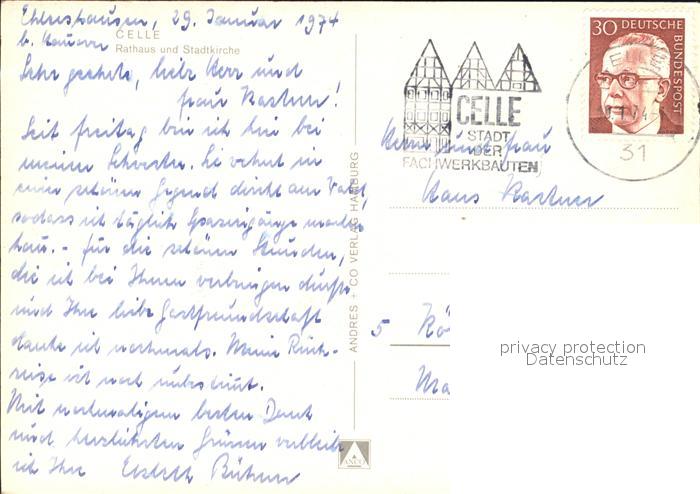 Ehlershausen, 29. Januar 1974
b. Hannover
CELLE
Rathaus und Stadtkirche
Sehr geehrte, liebe Herr und
Frau Kastner!
Seit Freitag bin ich hier bei
meiner Schwester. Sie wohnt in
einer schönen Gegend direkt am Wald,
sodass ich täglich Spaziergänge machen
kann. - Für die schönen Stunden,
die ich bei Ihnen verbringen durfte
und Ihre liebe Gastfreundschaft
danke ich nochmals. Meine Rück-
reise ist noch unbestimmt.
Mit nochmaligem besten Dank
und herzlichsten Grüssen verbleibe
ich Ihre Elsbeth
ANDRES + CO VERLAG HAMBURG
ANCO
CELLE
STADT
DER
FACHWERKBAUTEN
30 DEUTSCHE
BUNDESPOST
31
Herrn und Frau
Hans Kastner
5 Kö
Ma
privacy protection
Datenschutz